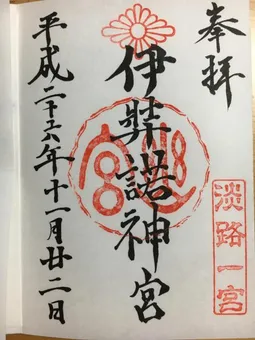 奉拝
淡路一宮
伊弉諾神宮
平成二十六年十一月廿二日